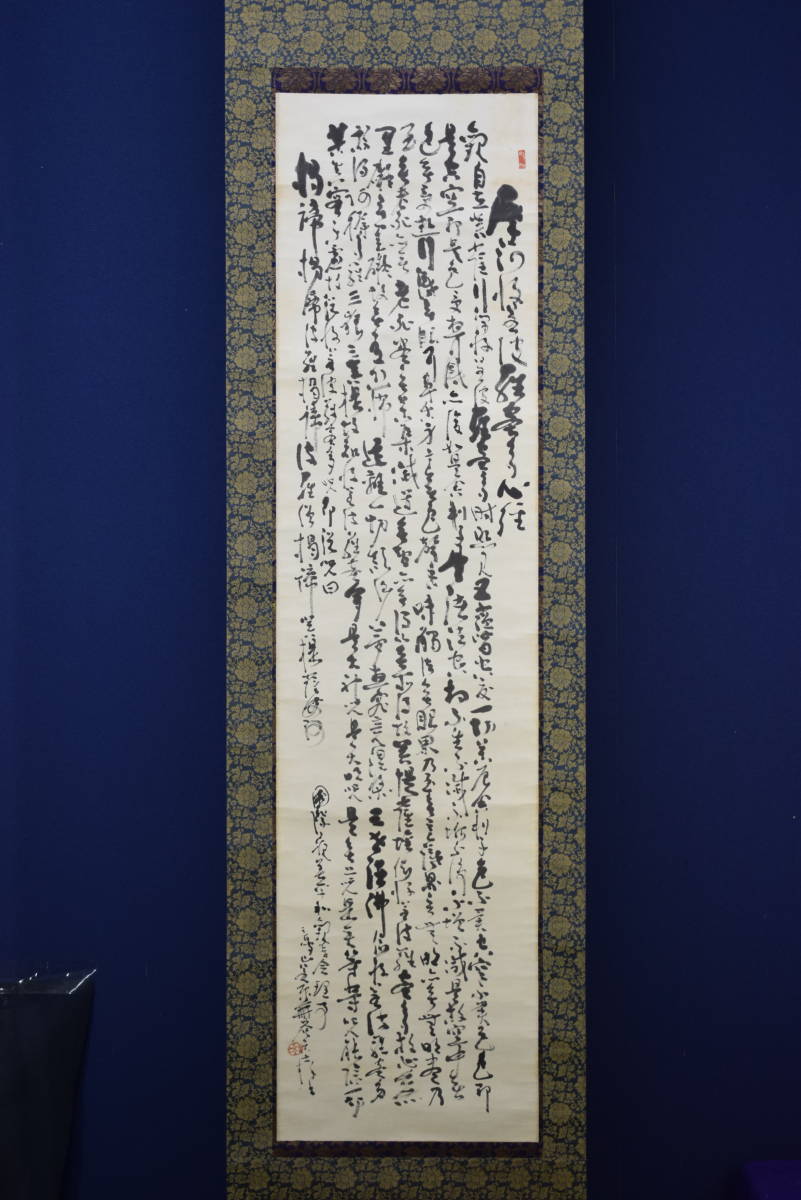 摩訶般若波羅蜜多心経
観自在菩薩行深般若波羅蜜多時照見五蘊皆空度一切苦厄舎利子色不異空空不異色色即
是空空即是色受想行識亦復如是舎利子是諸法空相不生不滅不垢不浄不増不減是故空中無
色無受想行識無眼耳鼻舌身意無色聲香味觸法無眼界乃至無意識界無無明亦無無明盡乃
至無老死亦無老死盡無苦集滅道無智亦無得以無所得故菩提薩埵依般若波羅蜜多故心無
罣礙無罣礙故無有恐怖遠離一切顛倒夢想究竟涅槃三世諸佛依般若波羅蜜多
故得阿耨多羅三藐三菩提故知般若波羅蜜多是大神呪是大明呪是無上呪是無等等呪能除一切
苦真実不虚故説般若波羅蜜多呪即説呪曰
揭諦揭諦波羅揭諦波羅僧揭諦菩提薩婆訶